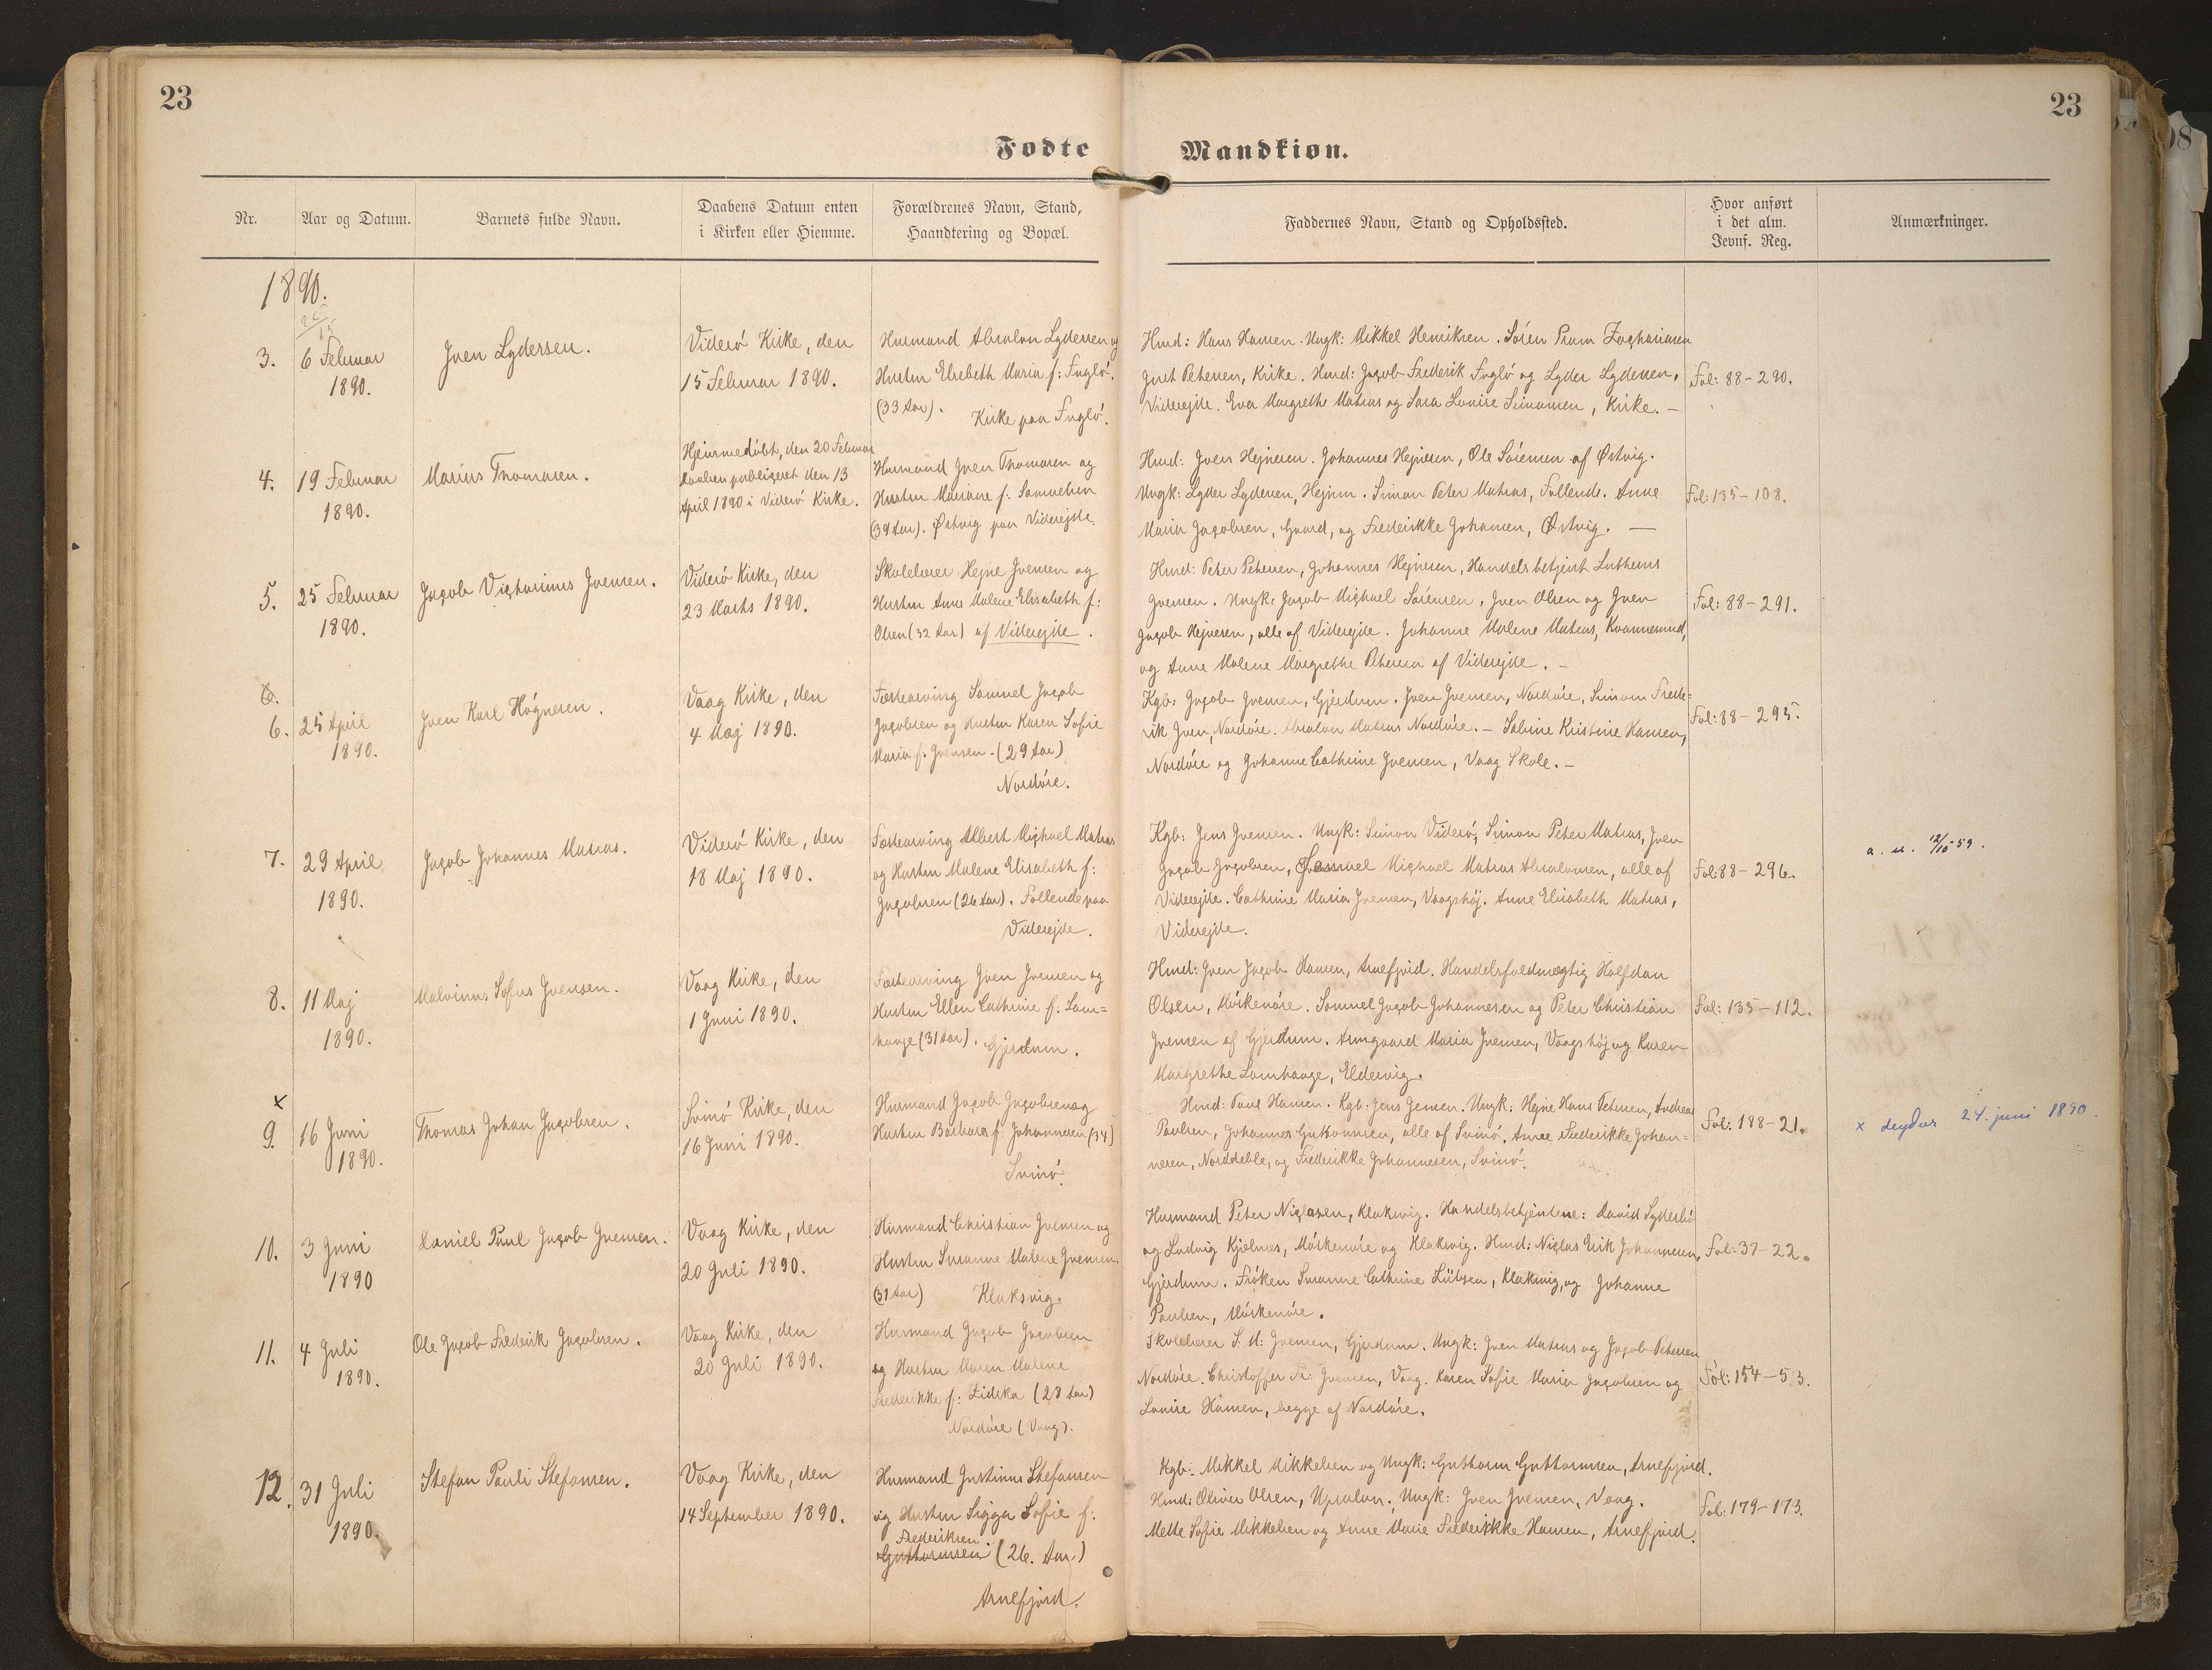 23
23
Fødte
Mandkiøn.
Nr.
Aar og Datum.
Barnets fulde Navn.
Daabens Datum enten
i Kirken eller Hiemme.
Forældrenes Navn, Stand,
Haandtering og Bopæl.
Faddernes Navn, Stand og Opholdssted.
Hvor anført
i det alm.
Jevnf. Reg.
Anmærkninger.
1890.
3.
6 Februar
1890.
Joen Lydersen.
Viderö Kirke, den
15 Februar 1890.
Husmand Absalon Lydersen og
Hustru Elsebeth Maria f: Fuglö.
(33 Aar).
Kirke paa Fuglö.
Hmd: Hans Hansen. Ungk: Mikkel Henriksen. Sören Pram Zachariasen
Just Petersen, Kirke. Hmd: Jacob Frederik Fuglö og Lyder Lydersen,
Viderejde. Eva Margrethe Matras og Sara Louise Simonsen, Kirke. —
Fol: 88-290.
4.
19 Februar
1890.
Marius Thomasen.
Hjemmedöbt, den 20 Februar
Daaben publiceret den 13
April 1890 i Viderö Kirke.
Husmand Joen Thomasen og
Hustru Mariane f. Samuelsen
(39 Aar). Østvig paa Viderejde.
Hmd: Joen Hejnesen. Johannes Hejnesen, Ole Sörensen af Østvig.
Ungk: Lyder Lydersen, Hejnm. Simon Peter Matras, Fallende. Anne
Maria Jacobsen, Gaard, og Frederikke Johansen, Østvig. —
Fol: 135-108.
5.
25 Februar
1890.
Jacob Victorinus Joensen.
Viderö Kirke, den
23 Marts 1890.
Skolelærer Hejne Joensen og
Hustru Anne Malene Elisabeth f:
Olsen (32 Aar) af Viderejde.
Hmd: Peter Petersen, Johannes Hejnesen, Handelsbetjent Lutherus
Joensen. Ungk: Jacob Michael Sörensen, Joen Olsen og Joen
Jacob Hejnesen, alle af Viderejde. Johanne Malene Matras, Kvannesund,
og Anne Malene Margrethe Petersen af Viderejde. —
Fol: 88-291.
6.
6.
25 April
1890.
Joen Karl Högnesen.
Vaag Kirke, den
4 Maj 1890.
Fæstearving Samuel Jacob
Jacobsen og Hustru Karen Sofie
Maria f. Joensen. (29 Aar)
Nordöre.
Kgb: Jacob Joensen, Gjerdum. Joen Joensen, Nordöre, Simon Frede=
rik Joen, Nordöre. Absalon Matras Nordöre. — Sabine Kristine Hansen,
Nordöre og Johanne Cathrine Joensen, Vaag Skole. —
Fol: 88-295.
7.
29 April
1890.
Jacob Johannes Matras.
Viderö Kirke, den
18 Maj 1890.
Fæstearving Albert Michael Matras
og Hustru Malene Elisabeth f:
Jacobsen (26 Aar). Fallende paa
Viderejde.
Kgb: Jens Joensen. Ungk: Simon Viderö, Simon Peter Matras, Joen
Jacob Jacobsen, Samuel Michael Matras Absalonsen, alle af
Viderejde. Cathrine Maria Joensen, Vaagshöj. Anne Elisabeth Matras,
Viderejde.
Fol: 88-296.
a. u. 12/10 59.
8.
11 Maj
1890.
Malvinus Sofus Joensen.
Vaag Kirke, den
1 Juni 1890.
Fæstearving Joen Joensen og
Hustru Ellen Cathrine f: Lam=
hauge (31 Aar). Gjerdum.
Hmd: Joen Jacob Hansen, Arnefjord. Handelsfuldmægtig Halfdan
Olsen, Mörkenöre. Samuel Jacob Johannesen og Peter Christian
Joensen af Gjerdum. Armgaard Maria Joensen, Vaagshöj og Karen
Margrethe Lamhauge, Eldevig.
Fol: 135-112.
x
9.
16 Juni
1890.
Thomas Johan Jacobsen.
Svinö Kirke, den
16 Juni 1890.
Husmand Jacob Jacobsen og
Hustru Barbara f. Johannesen (34)
Svinö.
Hmd: Paul Hansen. Kgb: Jens Jensen. Ungk: Hejne Hans Petersen, Andreas
Paulsen, Johannes Guttormsen, alle af Svinö. Anne Frederikke Johan=
nesen, Norddeble, og Frederikke Johannesen, Svinö.
Fol: 188-21.
x deyður 24. juni 1890.
10.
3 Juni
1890
Daniel Paul Jacob Joensen.
Vaag Kirke, den
20 Juli 1890.
Husmand Christian Joensen og
Hustru Susanne Malene Joensen.
(31 Aar) Klaksvig.
Husmand Peter Niclasen, Klaksvig. Handelsbetjentene: David Syderbö
og Ludvig Kjölnes, Mörkenöre og Klaksvig. Hmd: Niclas Erik Johannesen,
Gjerdum. Fröken Susanne Cathrine Lützen, Klaksvig, og Johanne
Paulsen, Mörkenöre.
Fol: 37-22.
11.
4 Juli
1890.
Ole Jacob Frederik Jacobsen.
Vaag Kirke, den
20 Juli 1890.
Husmand Jacob Jacobsen
og Hustru Maren Malene
Frederikke f: Zidska (28 Aar)
Nordöre (Vaag).
Skolelærer S. M: Joensen, Gjerdum. Ungk: Joen Matras og Jacob Petersen
Nordöre. Christoffer Fr: Joensen, Vaag. Karen Sofie Maria Jacobsen og
Louise Hansen, begge af Nordöre.
Fol: 154-53.
12.
31 Juli
1890.
Stefan Pauli Stefansen.
Vaag Kirke, den
14 September 1890.
Husmand Justinus Stefansen
og Hustru Sigga Sofie f:
Frederiksen
Guttormsen (26. Aar.)
Arnefjord.
Kgb: Mikkel Mikkelsen og Ungk: Guttorm Guttormsen, Arnefjord.
Hmd: Oliver Olsen, Upsalon. Ungk: Joen Joensen, Vaag.
Mette Sofie Mikkelsen og Anne Marie Frederikke Hansen, Arnefjord.
Fol: 179-173.